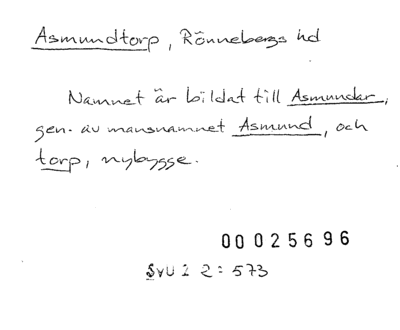 Asmundtorp, Rönnebergs hd
Namnet är bildat till Asmundar,
gen. av mansnamnet Asmund, och
torp, nybygge.
00025696
SVU 1 2:573